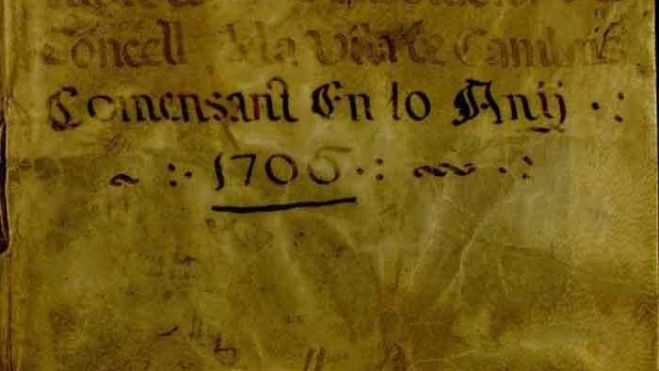 Concell de la Vila de Cambrils
Comensant En lo Anÿ .:
~ :· 1706 ·: ~~ ·: